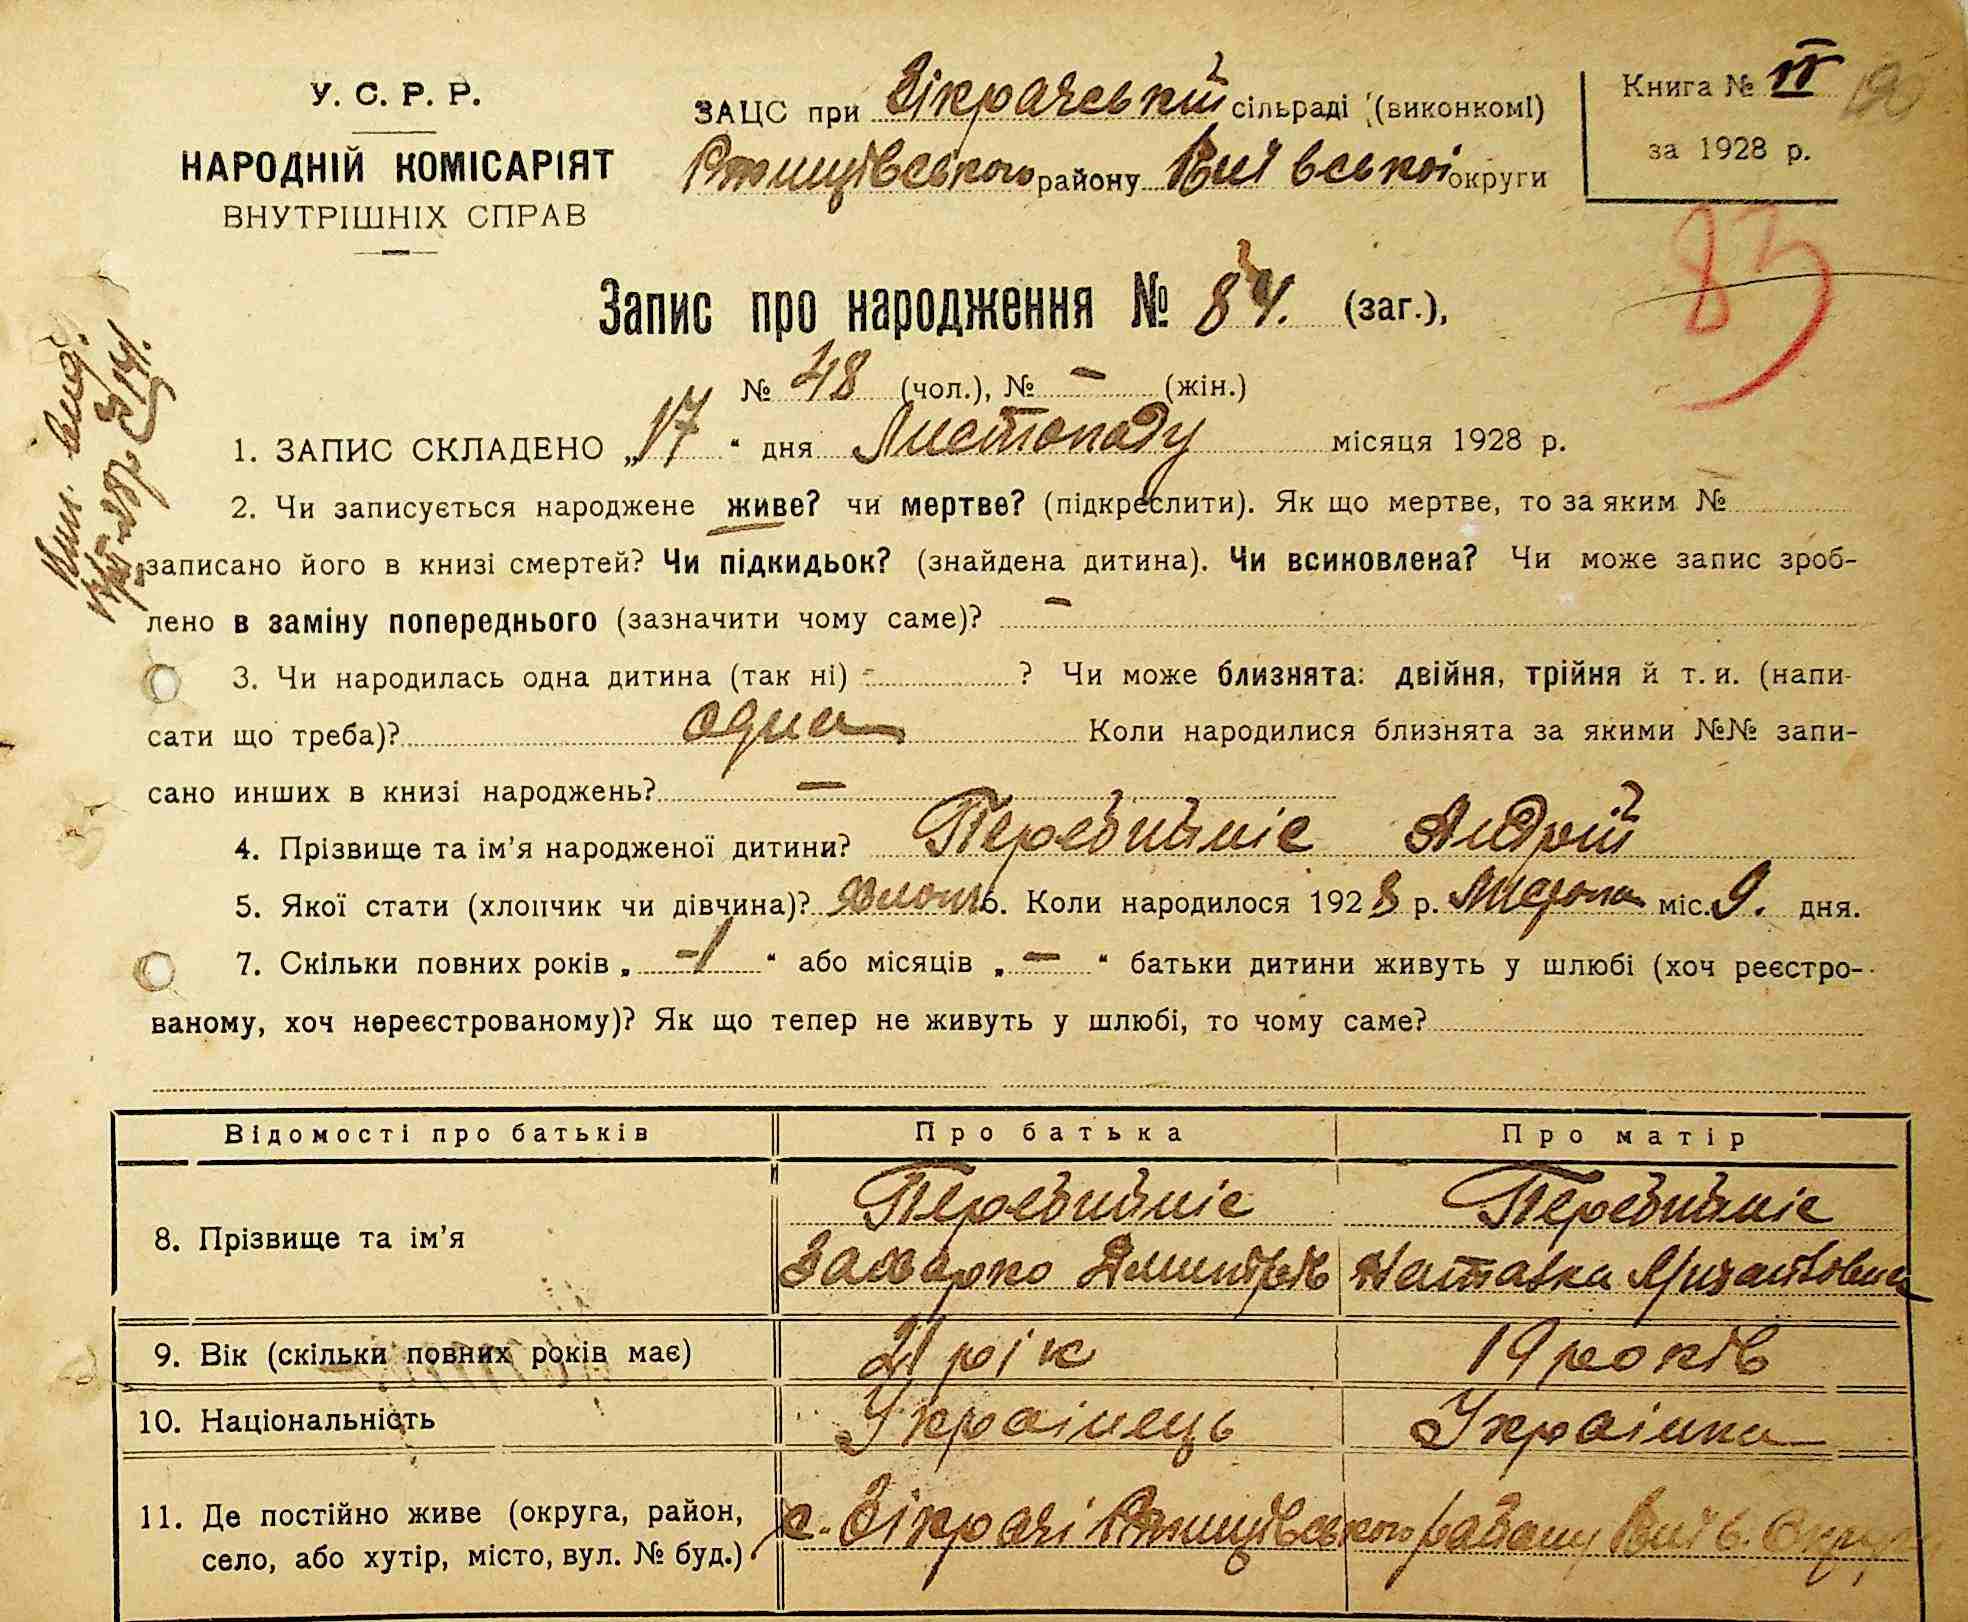 У. С. Р. Р.
НАРОДНІЙ КОМІСАРІЯТ
ВНУТРІШНІХ СПРАВ
ЗАЦС при Зікрачській сільраді (виконкомі)
Ржищівського району Київської округи
Книга № IV
за 1928 р.
83
Запис про народження № 84. (заг.),
№ 48 (чол.), № — (жін.)
1. ЗАПИС СКЛАДЕНО „17“ дня Листопаду місяця 1928 р.
2. Чи записується народжене живе? чи мертве? (підкреслити). Як що мертве, то за яким № —
записано його в книзі смертей? Чи підкидьок? (знайдена дитина). Чи всиновлена? Чи може запис зроб-
лено в заміну попереднього (зазначити чому саме)? —
3. Чи народилась одна дитина (так ні) - ? Чи може близнята: двійня, трійня й т. и. (напи-
сати що треба)? одна Коли народилися близнята за якими №№ запи-
сано инших в книзі народжень? —
4. Прізвище та ім'я народженої дитини? Перебийніс Андрій
5. Якої стати (хлопчик чи дівчина)? 6. Коли народилося 1928 р. Листопа міс. 9. дня.
7. Скільки повних років „ -1 “ або місяців „ — “ батьки дитини живуть у шлюбі (хоч реєстро-
ваному, хоч нереєстрованому)? Як що тепер не живуть у шлюбі, то чому саме?
Відомості про батьків Про батька Про матір
8. Прізвище та ім'я
Перебийніс Перебийніс
Захарко Дмитрів Наталка
9. Вік (скільки повних років має) 21 рік 19 років
10. Національність Українець Українка
11. Де постійно живе (округа, район,
село, або хутір, місто, вул. № буд.)
с. Зікрачі Ржищівського району Київ. Округи